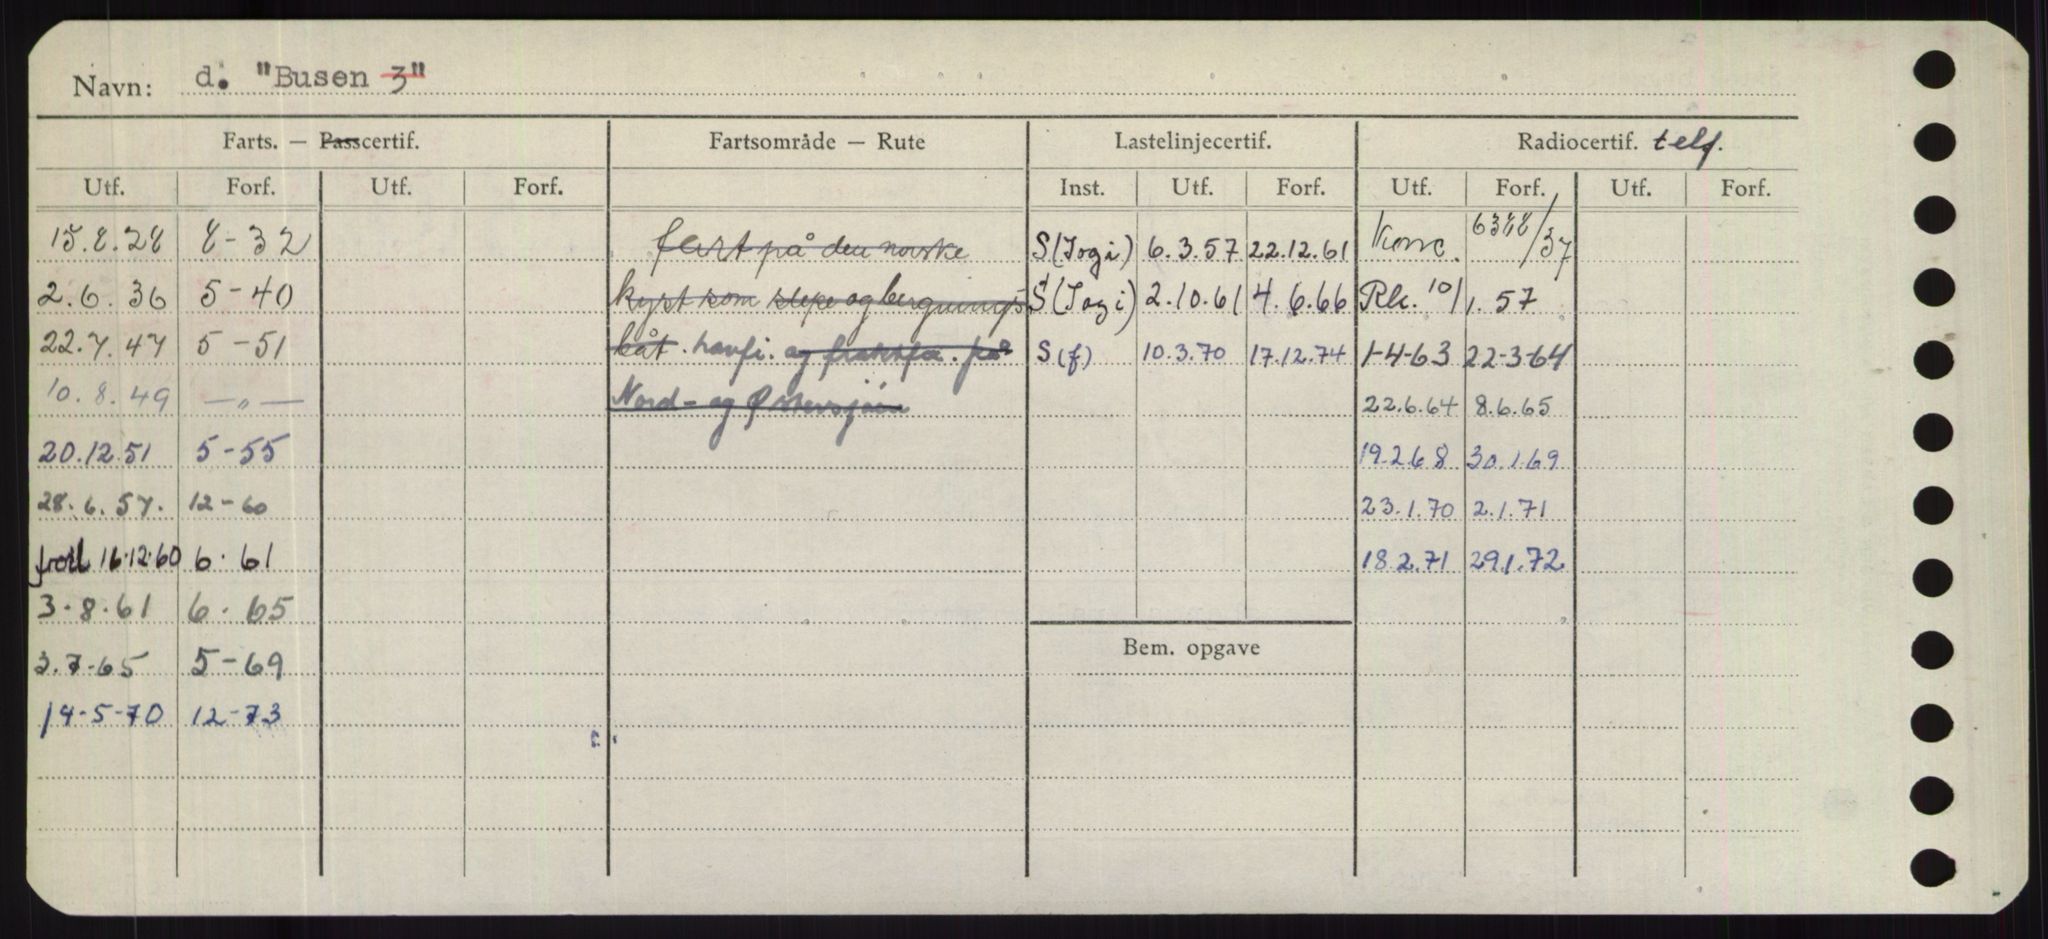 Navn: d. "Busen 3"
Farts. — Passcertif. Fartsområde — Rute Lastelinjecertif. Radiocertif. telf.
Utf. Forf. Utf. Forf. Inst. Utf. Forf. Utf. Forf. Utf. Forf.
15.8.28 8-32 fart på den norske S(Jogi) 6.3.57 22.12.61 Konc. 6388/37
2.6.36 5-40 kyst som slepe og bergnings S(Jogi) 2.10.61 4.6.66 Rk. 10/1.57
22.7.47 5-51 båt. havfi. og fraktfa. på S(f) 10.3.70 17.12.74 1-4-63 22-3-64
10.8.49 —"— Nord- og Østersjøen 22.6.64 8.6.65
20.12.51 5-55 19.2.68 30.1.69
28.6.57. 12-60 23.1.70 2.1.71
forl 16.12.60 6.61 18.2.71 29.1.72
3.8.61 6.65
Bem. opgave
3.7-65 5-69
14-5-70 12-73